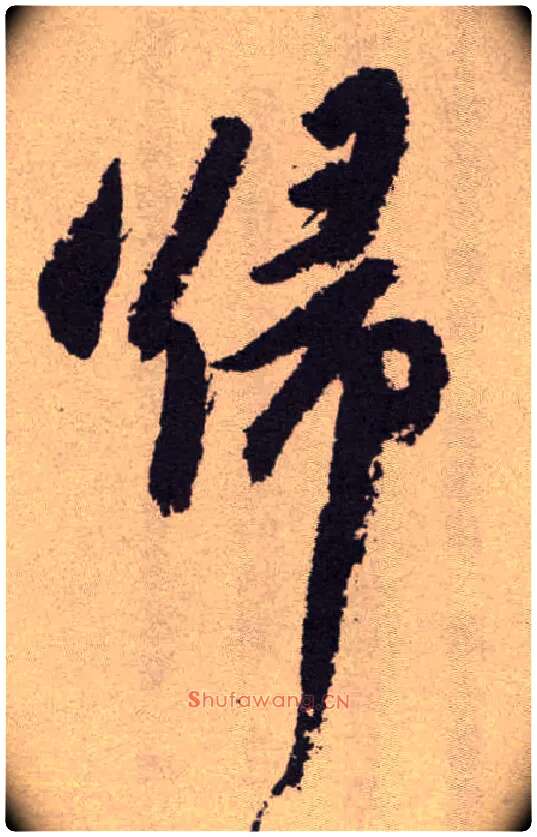 歸
Shufawang.CN